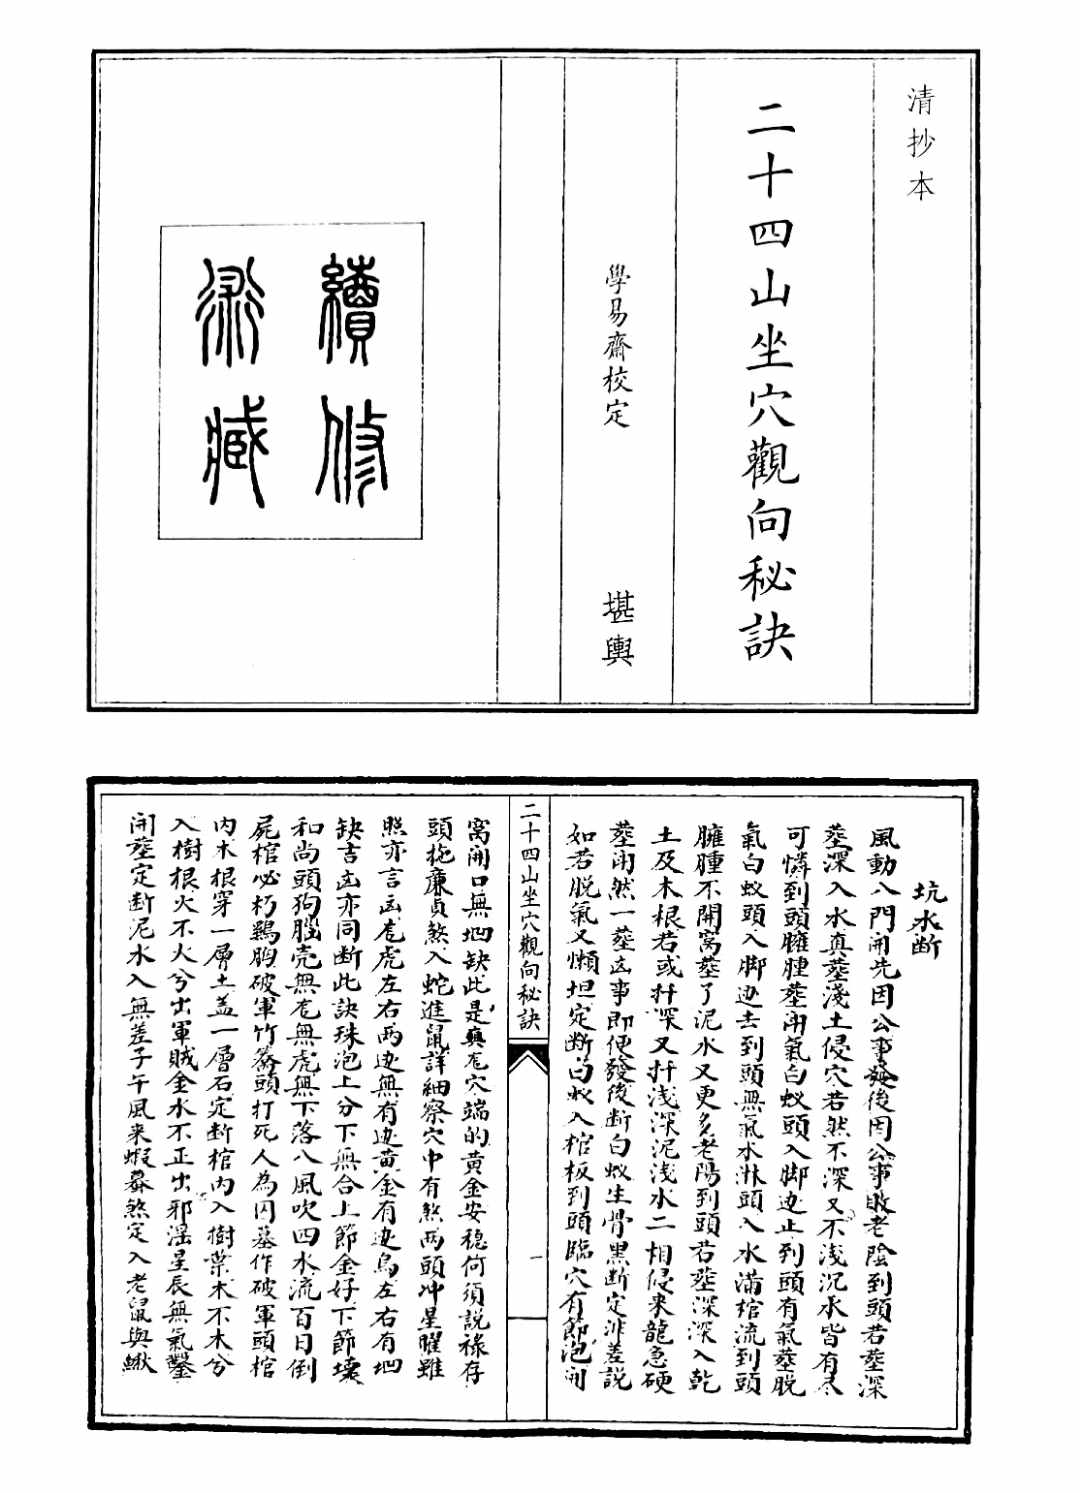 清抄本
二十四山坐穴觀向秘訣
學易齋校定
堪輿
續修
術藏
坑水断
風動八門開先因公事姦後因公事敗老陰到頭若塟深
塟深入水真塟淺土侵穴若然不深又不浅沉水皆有尽
可憐到頭臃腫塟開氣白蚁頭入脚边止到頭有氣塟脱
氣白蚁頭入脚边去到頭無氣水淋頭入水滿棺流到頭
臃腫不開窩塟了泥水又更多老陽到頭若塟深深入乾
土及木根若或扦深又扦浅深泥浅水二相侵来龍急硬
塟開然一塟凶事即便發後断白蚁生骨黑断定非差説
如若脱氣又懶坦定断白蚁入棺板到頭臨穴有節泡開
二十四山坐穴觀向秘訣
一
窩開口無凹缺此是真龙穴端的黄金安稳何須説祿存
頭拖廉貞煞入蛇進鼠詳細察穴中有煞两頭冲星曜雖
照亦言凶龙虎左右两边無有边黄金有边烏左右有凹
缺吉凶亦同断此訣珠泡上分下無合上節金好下節壊
和尚頭狗腦壳無龙無虎無下落八風吹四水流百日倒
屍棺必朽鷄胸破軍竹篙頭打死人為囚墓作破軍頭棺
内木根穿一層土盖一層石定断棺内入樹葉木不木兮
入樹根火不火兮出軍賊金水不正出邪滛星辰無氣鑿
開塟定断泥水入無差子午風来蝦蟇煞定入老鼠與鰍